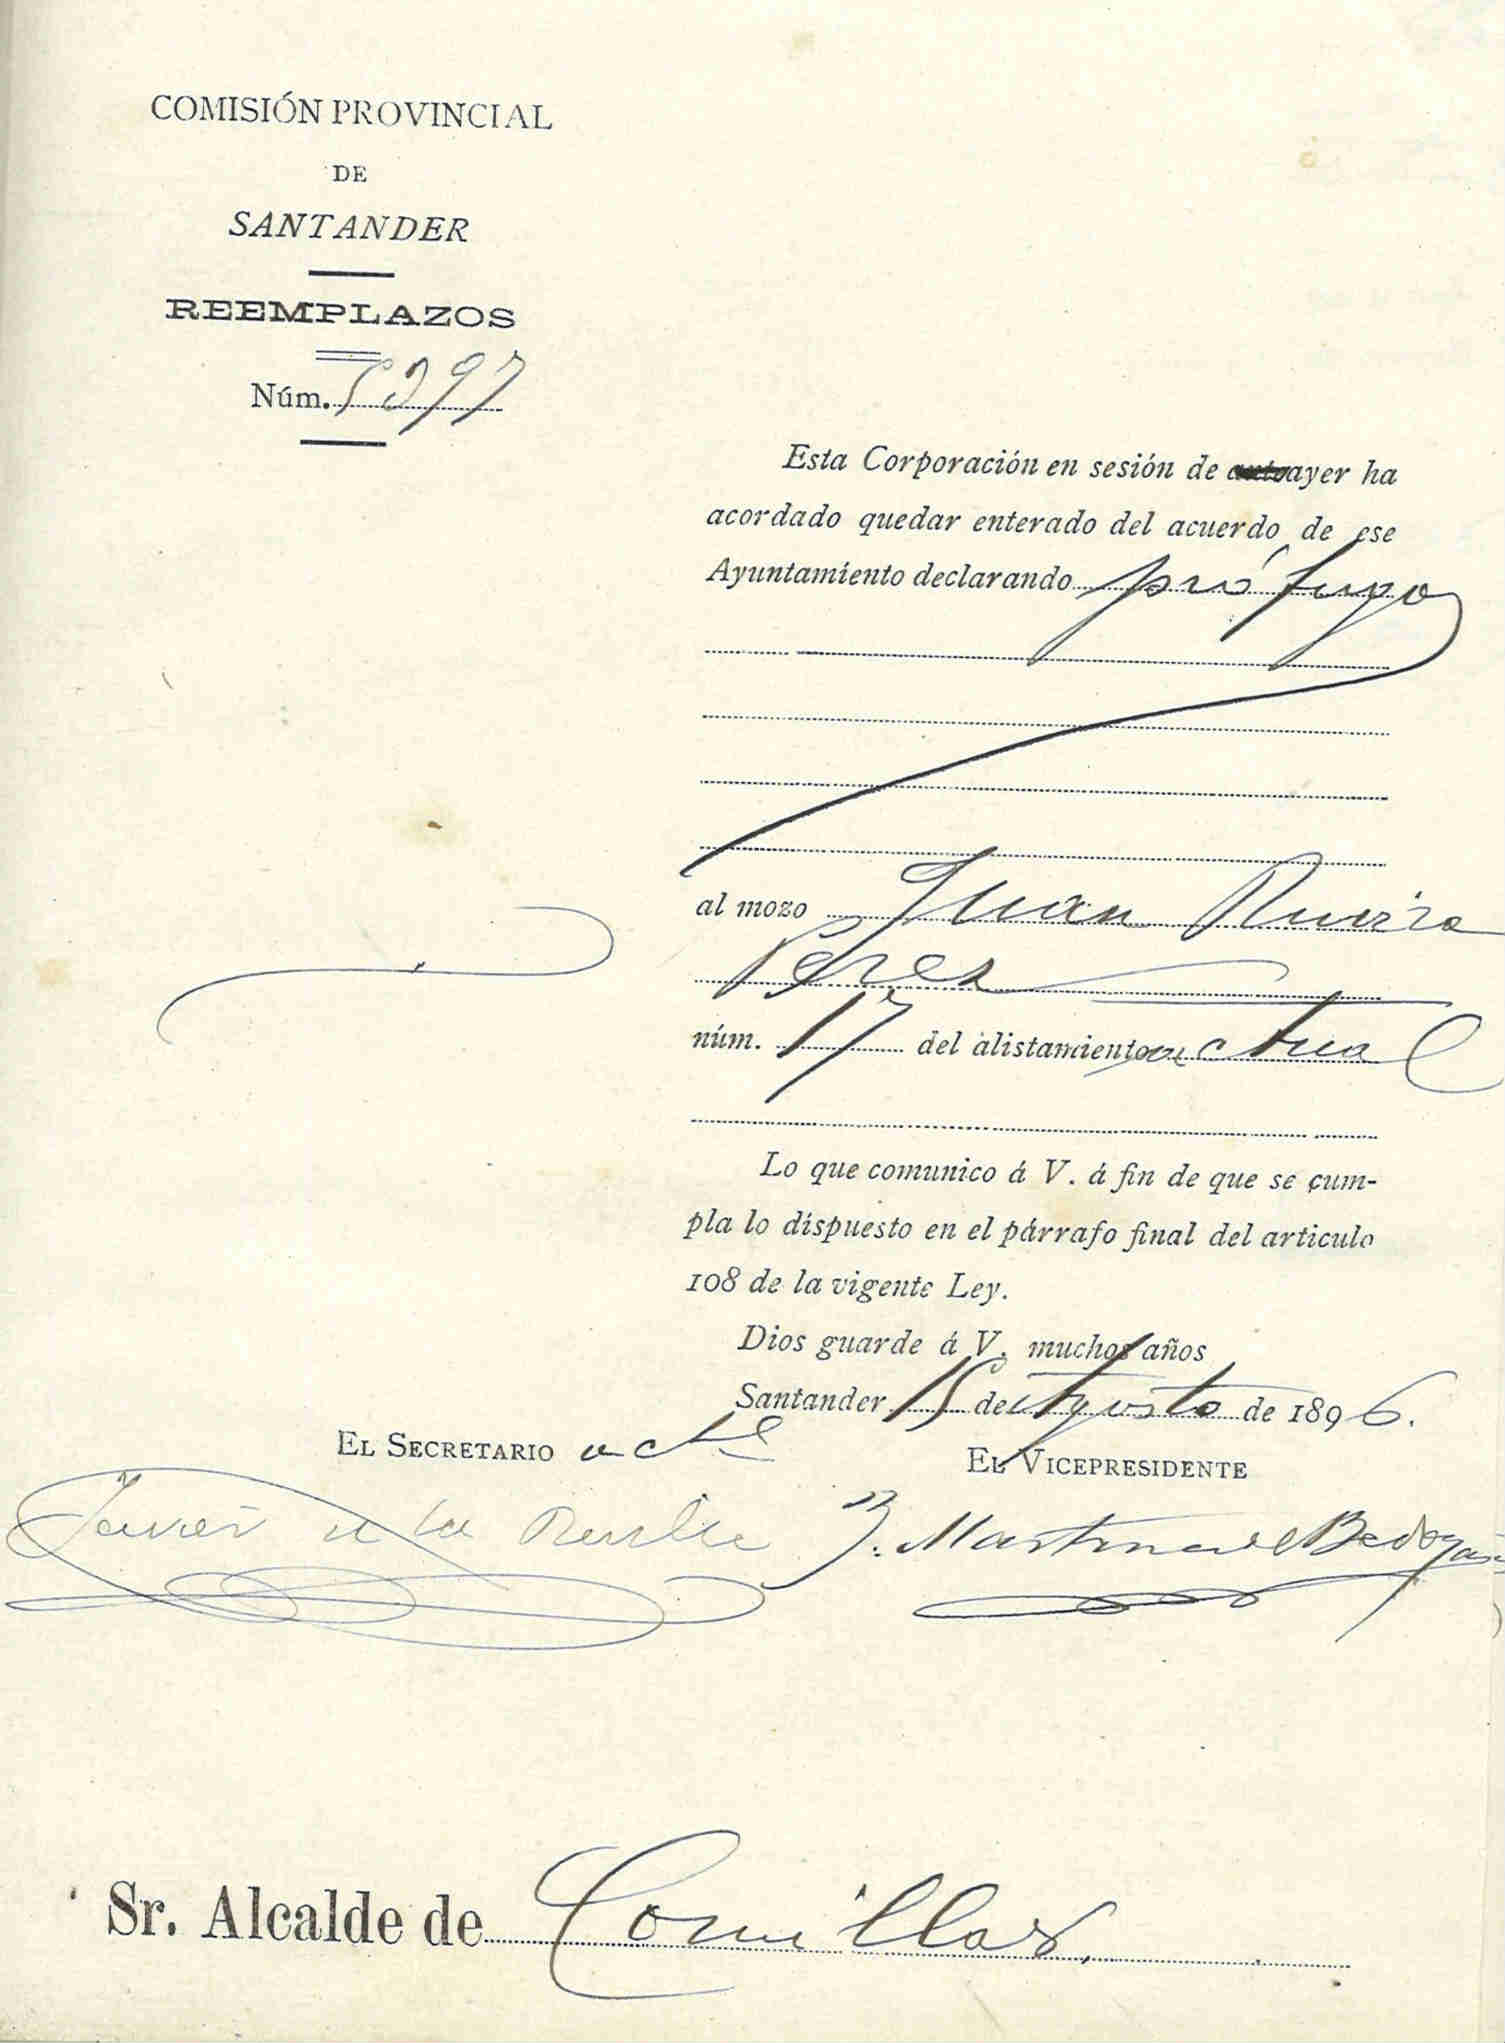 COMISIÓN PROVINCIAL
DE
SANTANDER
REEMPLAZOS
Núm. 5397
Esta Corporación en sesión de anteayer ha
acordado quedar enterado del acuerdo de ese
Ayuntamiento declarando prófugo
al mozo Juan
Perez
núm. 17 del alistamiento actual
Lo que comunico á V. á fin de que se cum-
pla lo dispuesto en el párrafo final del articulo
108 de la vigente Ley.
Dios guarde á V. muchos años
Santander 15 de Agosto de 1896.
EL SECRETARIO actl
EL VICEPRESIDENTE
Javier de la
Martinez de Bedoya
Sr. Alcalde de Comillas.